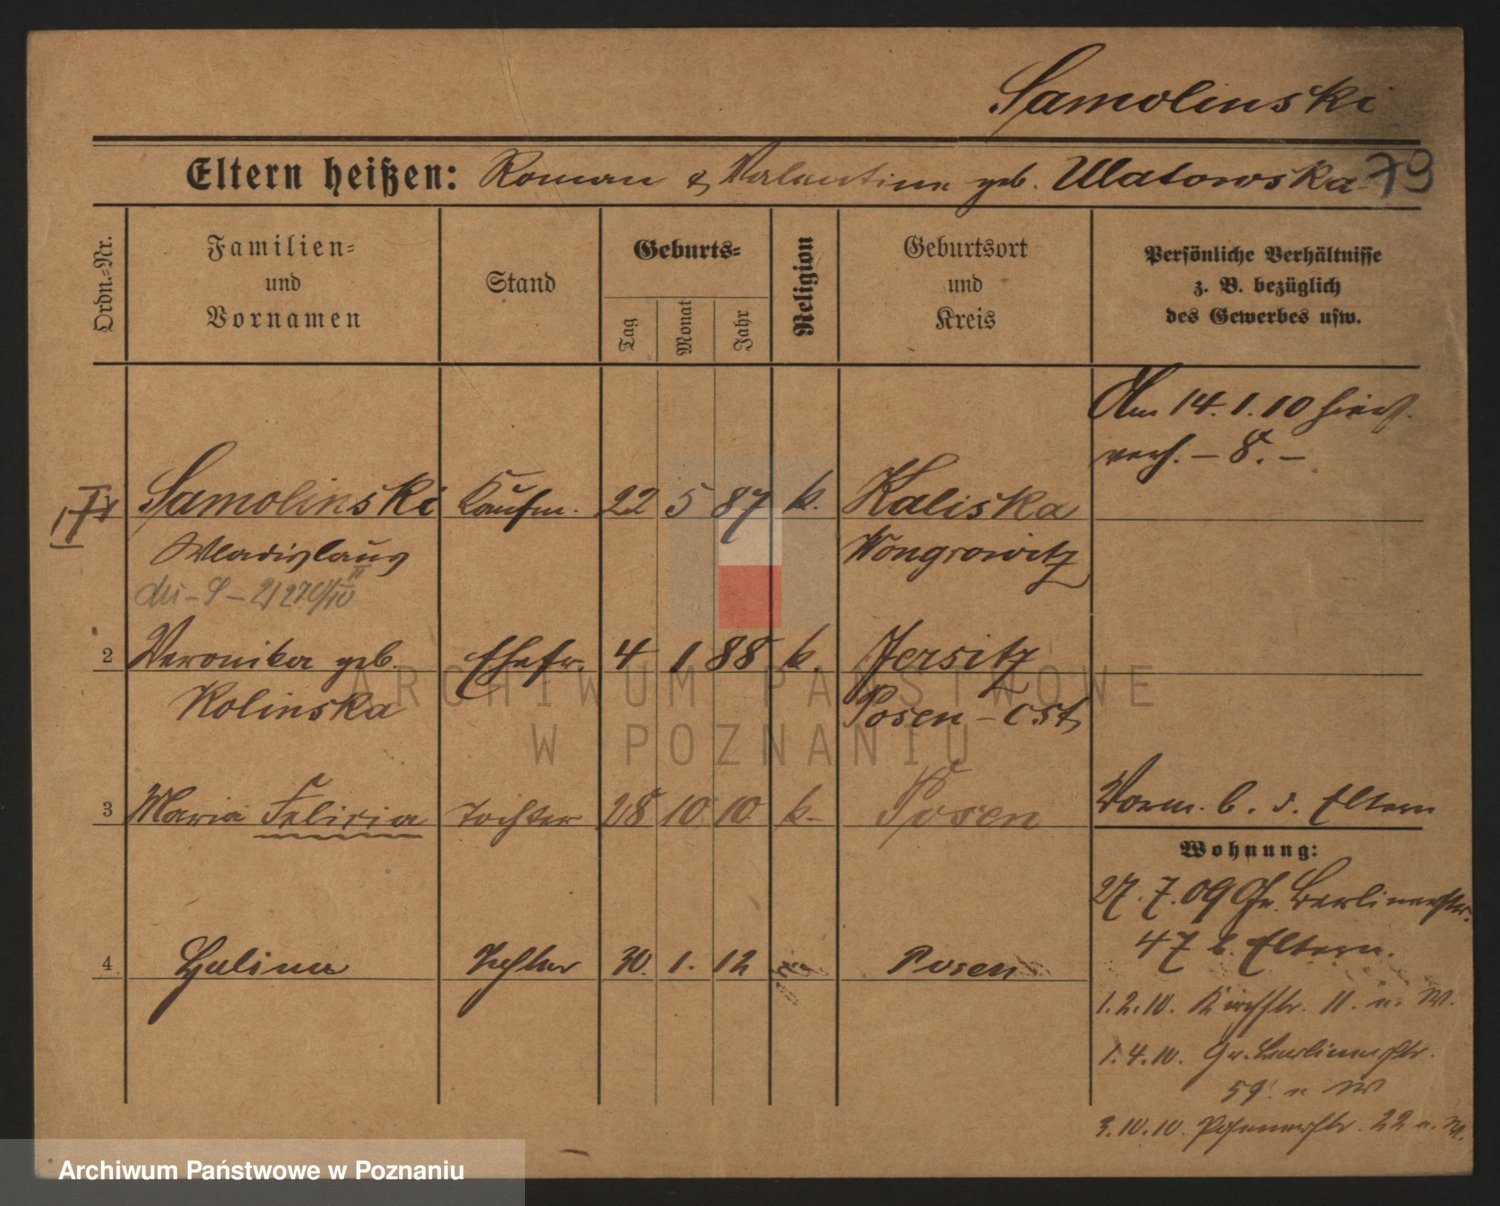 Samolinski
Eltern heißen: Roman & Valentine geb. Ulatowska
79
Ordn.-Nr.
Familien-
und
Vornamen
Stand
Geburts-
Tag
Monat
Jahr
Religion
Geburtsort
und
Kreis
Persönliche Verhältnisse
z. B. bezüglich
des Gewerbes usw.
Am 14.1.10 hier
verh. – 8. –
Samolinski Kaufm. 22 5 87 k. Kaliska
Wladislaus Wongrowitz
2 Veronika geb. Ehefr. 4 1 88 k. Jersitz
Kolinska Posen-Ost
3 Maria Felicia Tochter 28 10 10 k. Posen
Vorm. b. d. Eltern
Wohnung:
27.7.09 Gr. Berlinerstr.
47 b. Eltern.
4 Halina Tochter 30. 1. 12 Posen
1.2.10. Kirchstr. 11. n. W.
1.4.10. Gr. Berlinerstr.
59. n W
3.10.10. Posenerstr. 22 n. W.
ARCHIWUM PAŃSTWOWE
W POZNANIU
Archiwum Państwowe w Poznaniu